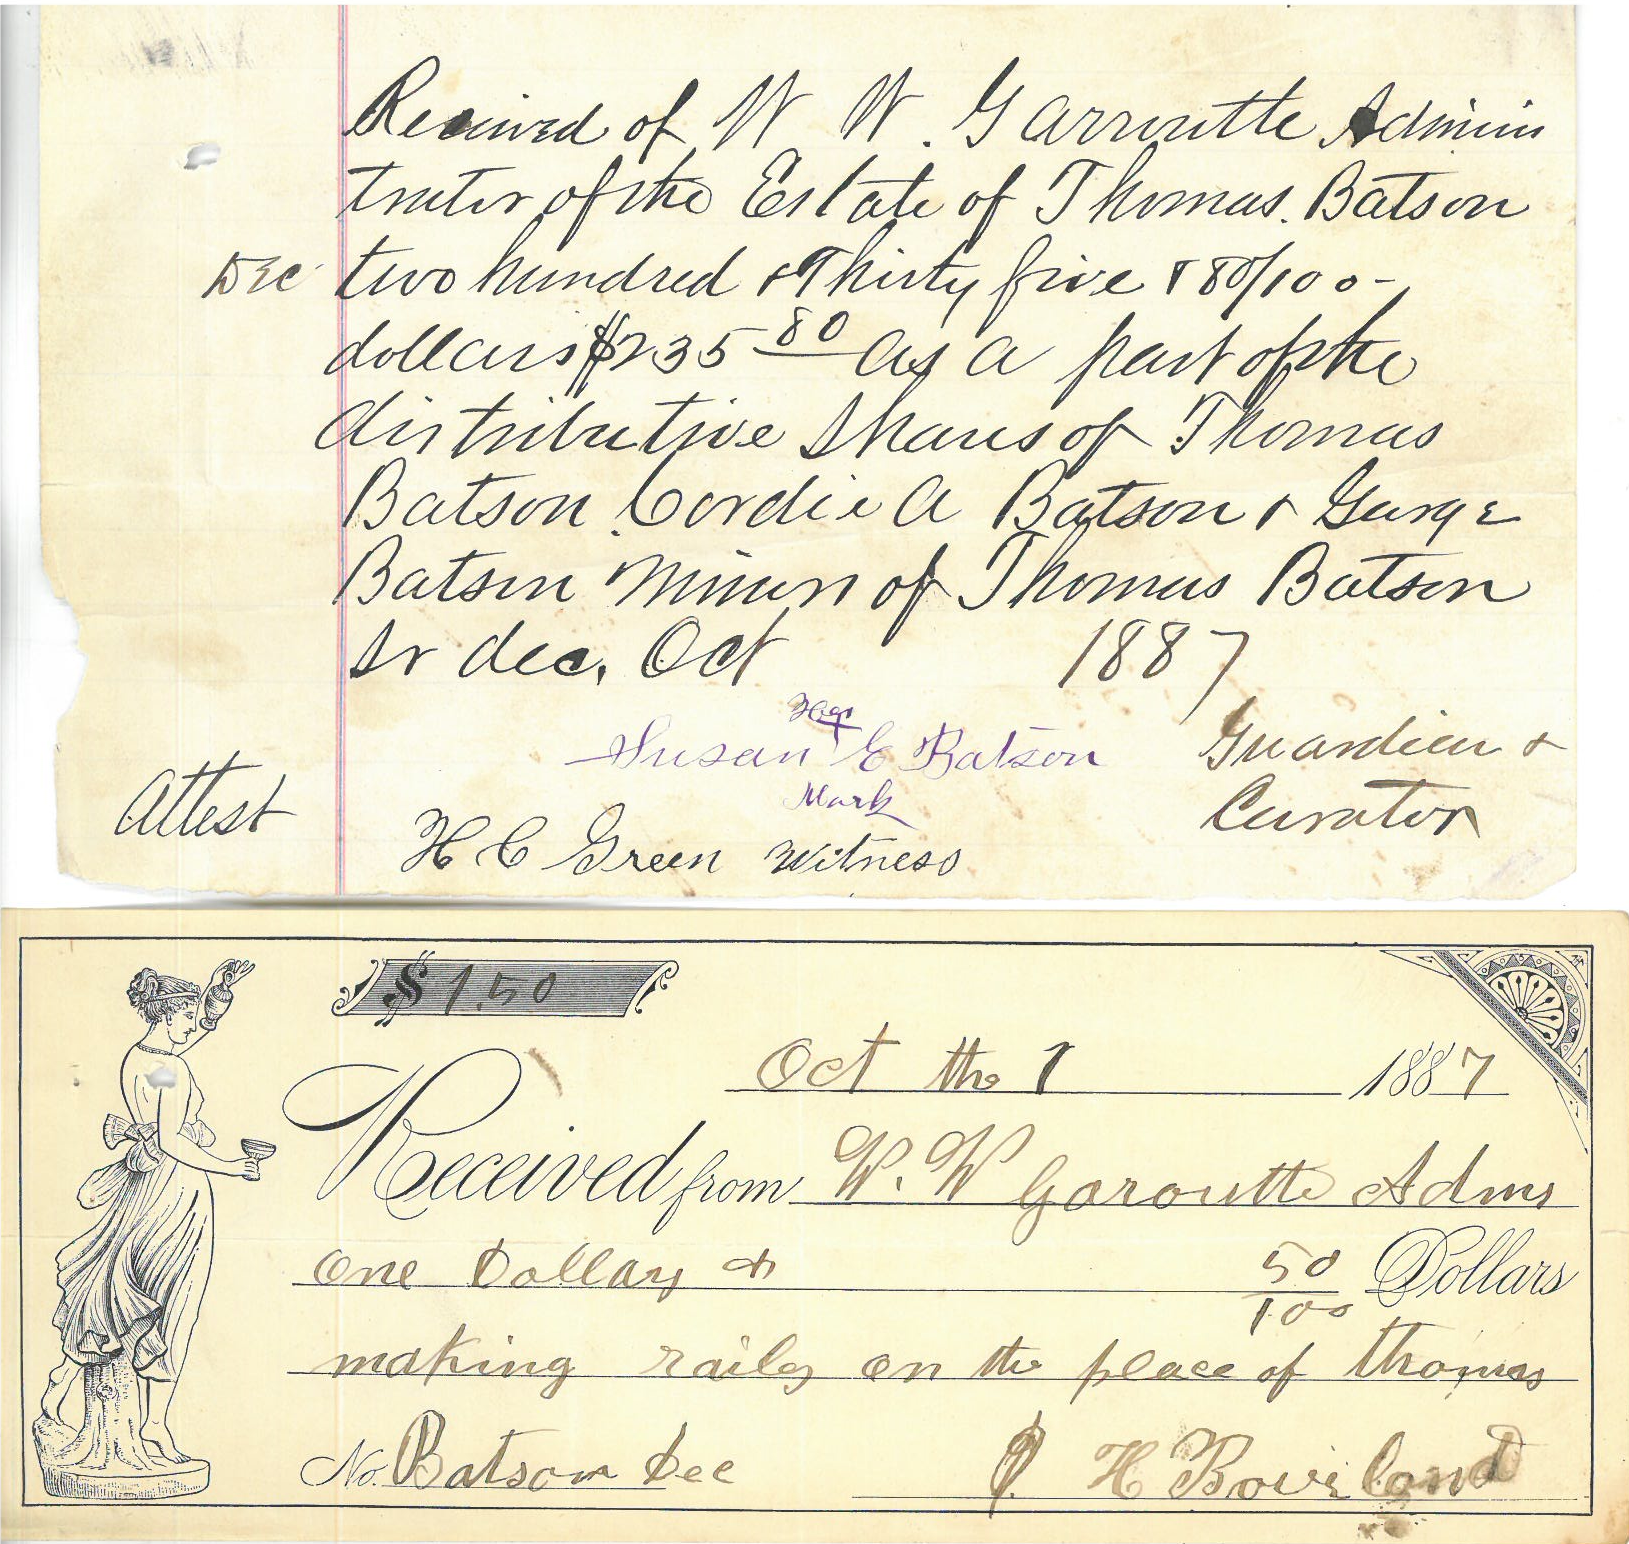 Received of W W. Garroutte Adminis
trator of the Estate of Thomas. Batson
Dec two hundred & Thirty five & 80/100-
dollars $235 80 as a part of the
distributive shares of Thomas
Batson Cordie A Batson & George
Batson Minors of Thomas Batson
Sr dec. Oct 1887
Her
Susan E Batson Guardian &
Mark Curator
Attest
H C Green Witness
$ 1.50
Oct the 1 1887
Received from W. W Garoutte Adms
one Dollar & 50/100 Dollars
making rails on the place of thomas
No. Batson Dec H